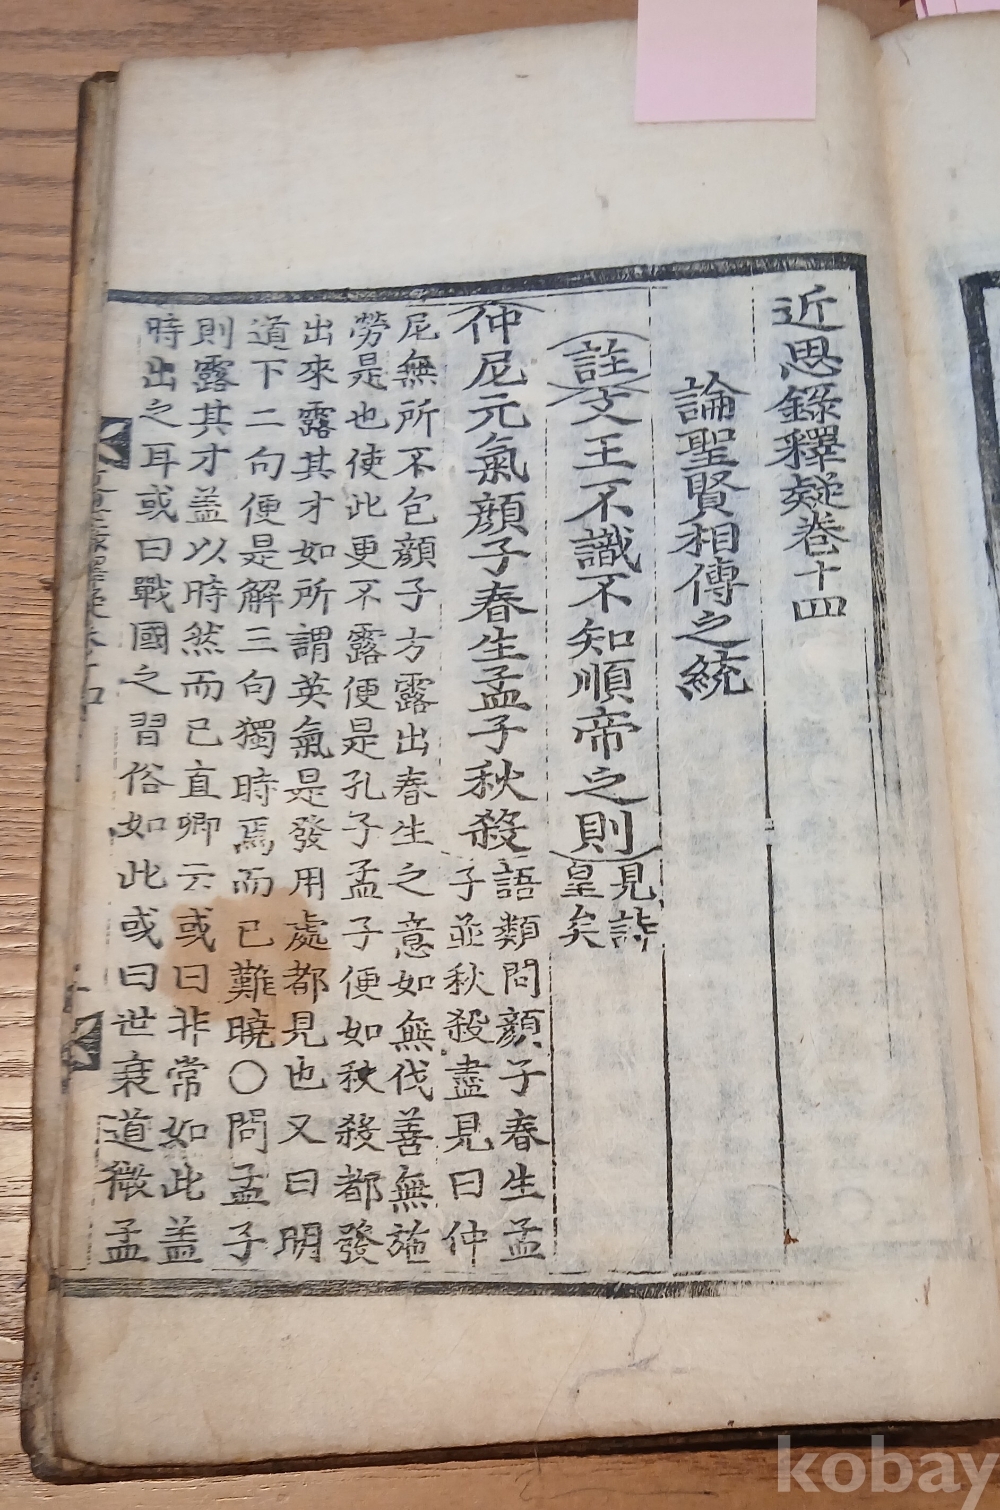 近思錄釋疑卷十四
論聖賢相傳之統
註文王不識不知順帝之則見詩
皇矣
仲尼元氣顔子春生孟子秋殺語類問顔子春生孟
子並秋殺盡見曰仲
尼無所不包顔子方露出春生之意如無伐善無施
勞是也使此更不露便是孔子孟子便如秋殺都發
出來露其才如所謂英氣是發用處都見也又曰明
道下二句便是解三句獨時焉而已難曉○問孟子
則露其才盖以時然而已直卿云或曰非常如此盖
時出之耳或曰戰國之習俗如此或曰世衰道微孟
kobay